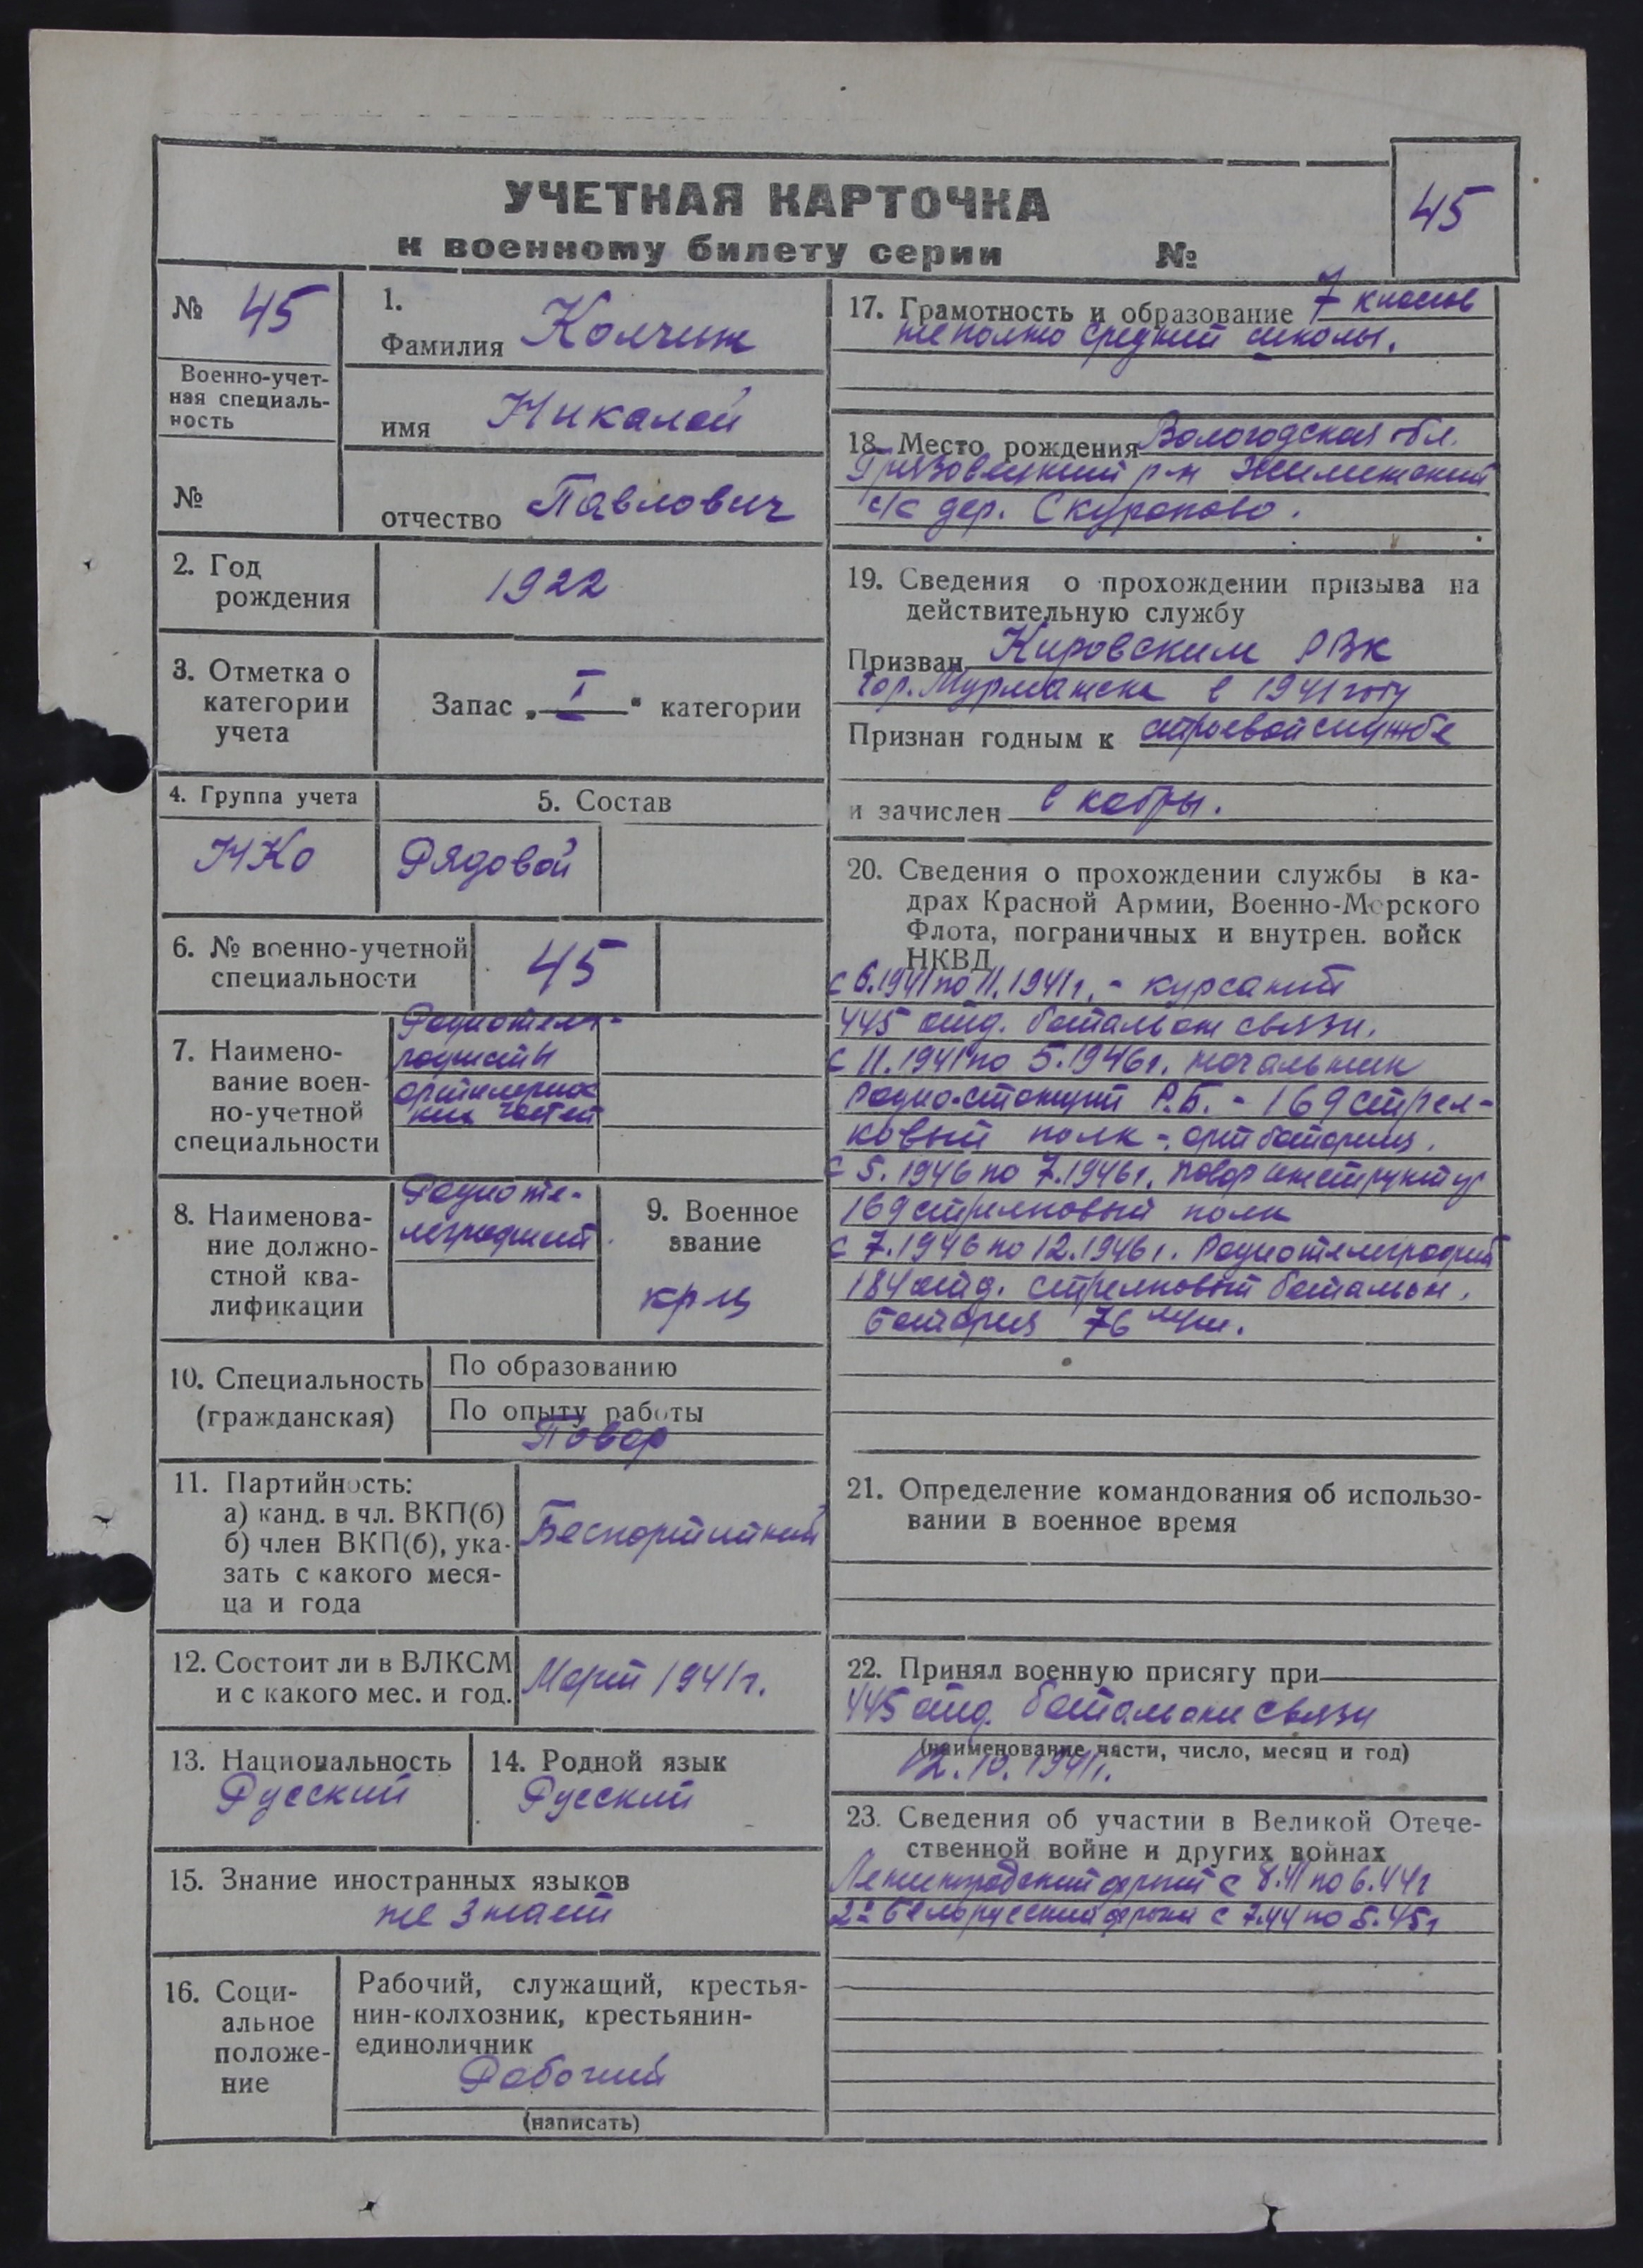 УЧЕТНАЯ КАРТОЧКА
к военному билету серии №
45
№ 45
Военно-учет-
ная специаль-
ность
№
1.
Фамилия Колчин
имя Николай
отчество Павлович
2. Год
рождения
1922
3. Отметка о
категории
учета
Запас „ I " категории
4. Группа учета
НКО
5. Состав
Рядовой
6. № военно-учетной
специальности
45
7. Наимено-
вание воен-
но-учетной
специальности
Радиотеле-
артилерийс
ких частей
8. Наименова-
ние должно-
стной ква-
лификации
Радиоте-
леграфист.
9. Военное
звание
кр-ц
10. Специальность
(гражданская)
По образованию
По опыту работы
Повар
11. Партийность:
а) канд. в чл. ВКП(б)
б) член ВКП(б), ука-
зать с какого меся-
ца и года
Беспартийный
12. Состоит ли в ВЛКСМ
и с какого мес. и год.
Март 1941г.
13. Национальность
Русский
14. Родной язык
Русский
15. Знание иностранных языков
не знает
16. Соци-
альное
положе-
ние
Рабочий, служащий, крестья-
нин-колхозник, крестьянин-
единоличник
Рабочий
(написать)
17. Грамотность и образование 7 классов
неполно средний школы.
18. Место рождения Вологодская обл.
Грязовецкий р-н
с/с дер. Скурапово.
19. Сведения о прохождении призыва на
действительную службу
Призван Кировским РВК
гор. Мурманска в 1941 году
Признан годным к строевой службе
и зачислен в кадры.
20. Сведения о прохождении службы в ка-
драх Красной Армии, Военно-Морского
Флота, пограничных и внутрен. войск
НКВД
с 6.1941 по 11.1941г. - курсант
445 отд. батальон связи.
с 11.1941 по 5.1946г. начальник
радиостанции Р.Б. - 169 стрел-
ковый полк - арт батария.
с 5. 1946 по 7.1946г. повар инструктур
169 стрелковый полк
с 7.1946 по 12.1946г. Радиотелеграфист
184 отд. стрелковый батальон.
батария 76 мм.
21. Определение командования об использо-
вании в военное время
22. Принял военную присягу при
445 отд. батальоне связи
(наименование части, число, месяц и год)
12.10.1941г.
23. Сведения об участии в Великой Отече-
ственной войне и других войнах
Ленинградский фронт с 8.41 по 6.44г
2й Белорусский фронт с 7.44 по 5.45г